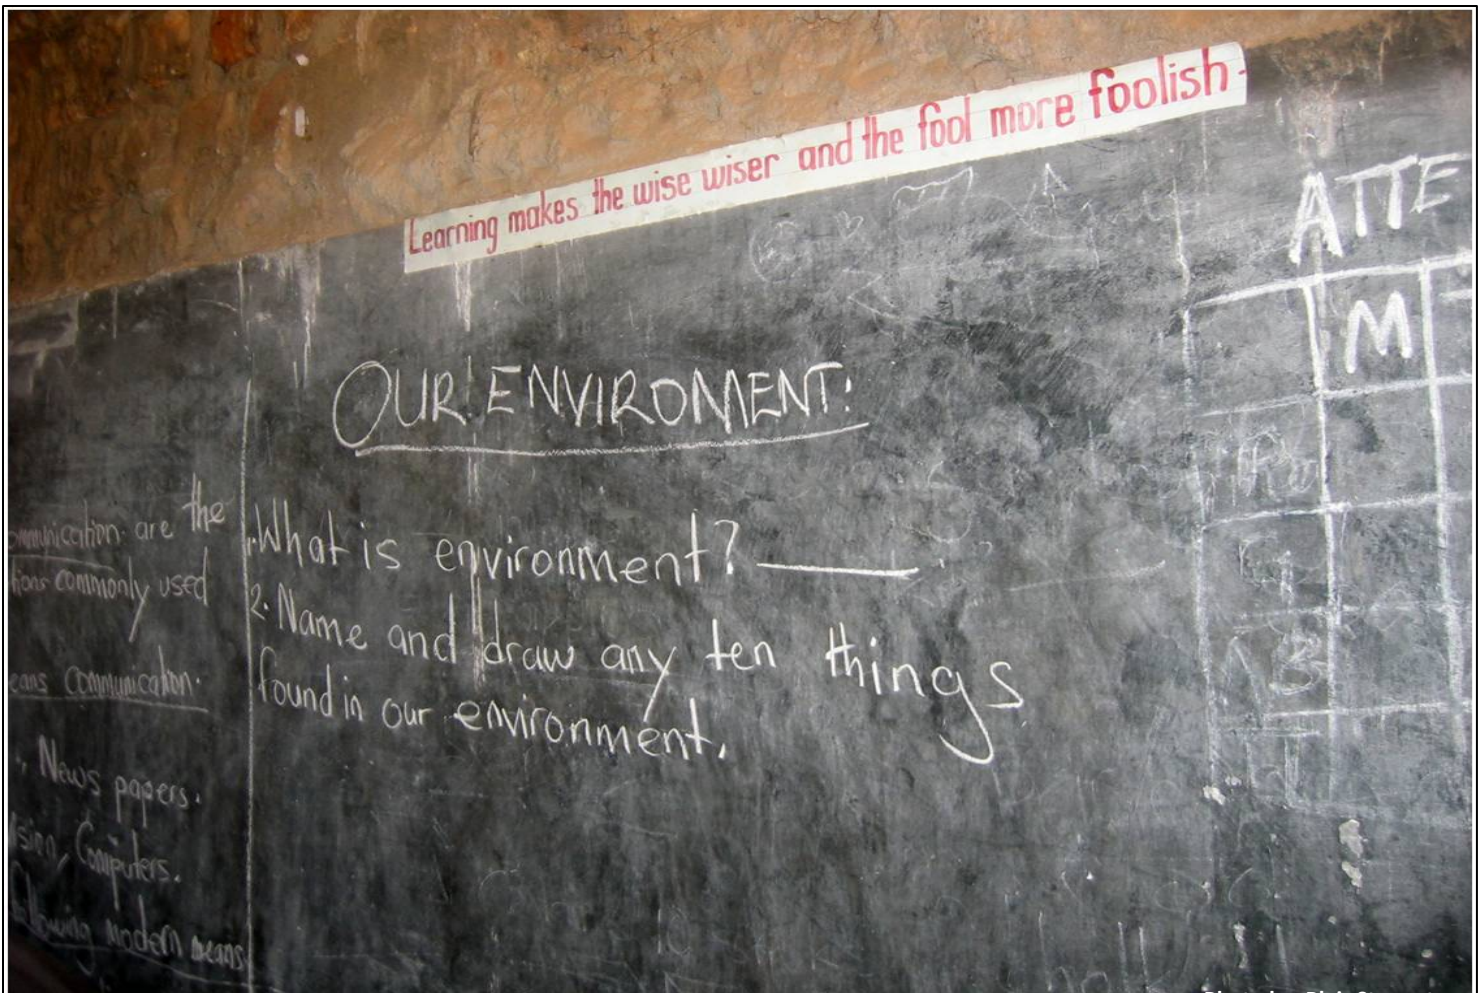 Learning makes the wise wiser and the fool more foolish.
ATTE
M
OUR ENVIROMENT:
are the
commonly used
communication.
News papers.
Computers.
modern means
1. What is environment? ———
2. Name and draw any ten things
found in our environment.